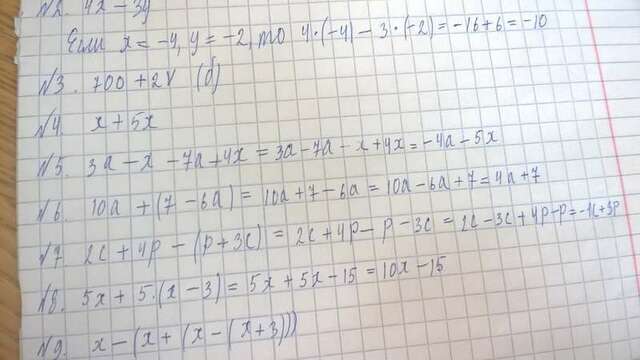 №2. 4x - 3y
Если x = -4, y = -2, то 4·(-4) - 3·(-2) = -16 + 6 = -10
№3. 700 + 2v (б)
№4. x + 5x
№5. 3a - x - 7a + 4x = 3a - 7a - x + 4x = -4a - 5x
№6. 10a + (7 - 6a) = 10a + 7 - 6a = 10a - 6a + 7 = 4a + 7
№7 2c + 4p - (p + 3c) = 2c + 4p - p - 3c = 2c - 3c + 4p - p = -1c + 3p
№8. 5x + 5·(x - 3) = 5x + 5x - 15 = 10x - 15
№9. x - (x + (x - (x + 3)))